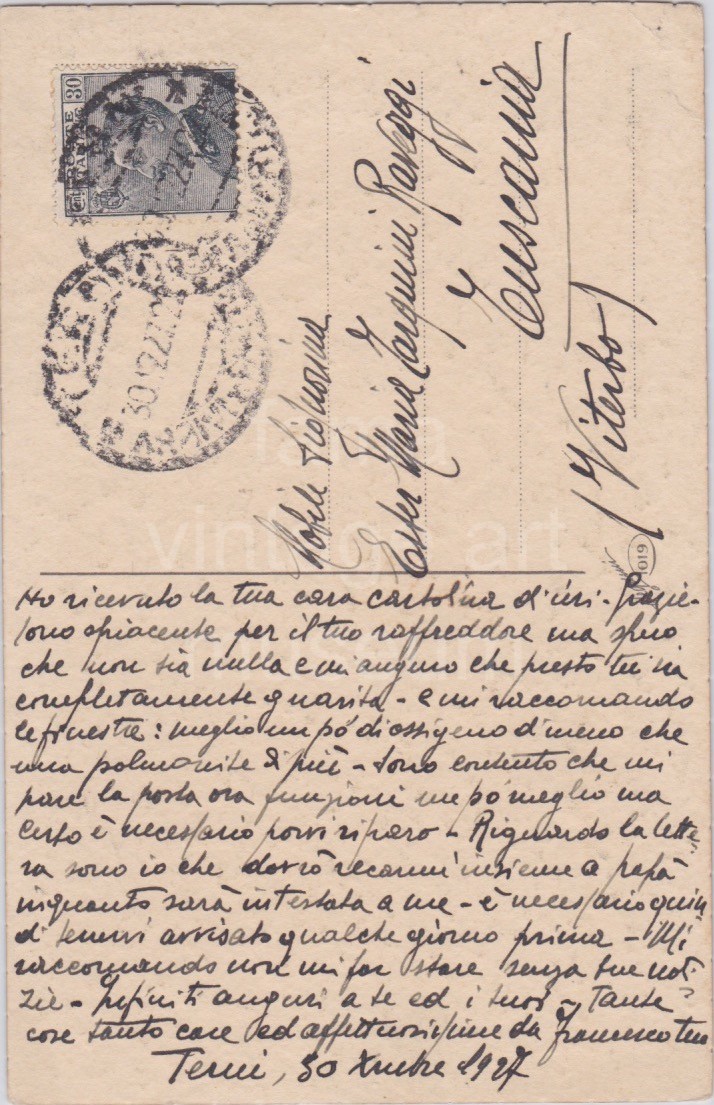 POSTE ITALIANE
Cent. 30
TERNI
30.12.27
Nobile Signorina
Ester Maria Tarquini
Tuscania
(Viterbo)
1019
vintage art
Ho ricevuto la tua cara cartolina d'ieri - Grazie -
Sono spiacente per il tuo raffreddore ma spero
che non sia nulla e mi auguro che presto tu sia
completamente guarita - e mi raccomando
le finestre: meglio un pó di ossigeno di meno che
una polmonite di più - Sono contento che mi
pare la posta ora funzioni un pó meglio ma
certo è necessario porvi riparo - Riguardo la lette
ra sono io che dovrò recarmi insieme a papà
inquanto sarà intestata a me - è necessario quin
di tenervi avvisato qualche giorno prima - Mi
raccomando non mi far stare senza tue noti
zie - Infiniti auguri a te ed i tuoi - Tante
cose tanto care ed affettuosissime da Francesco tuo
Terni, 30 Xmbre 1927